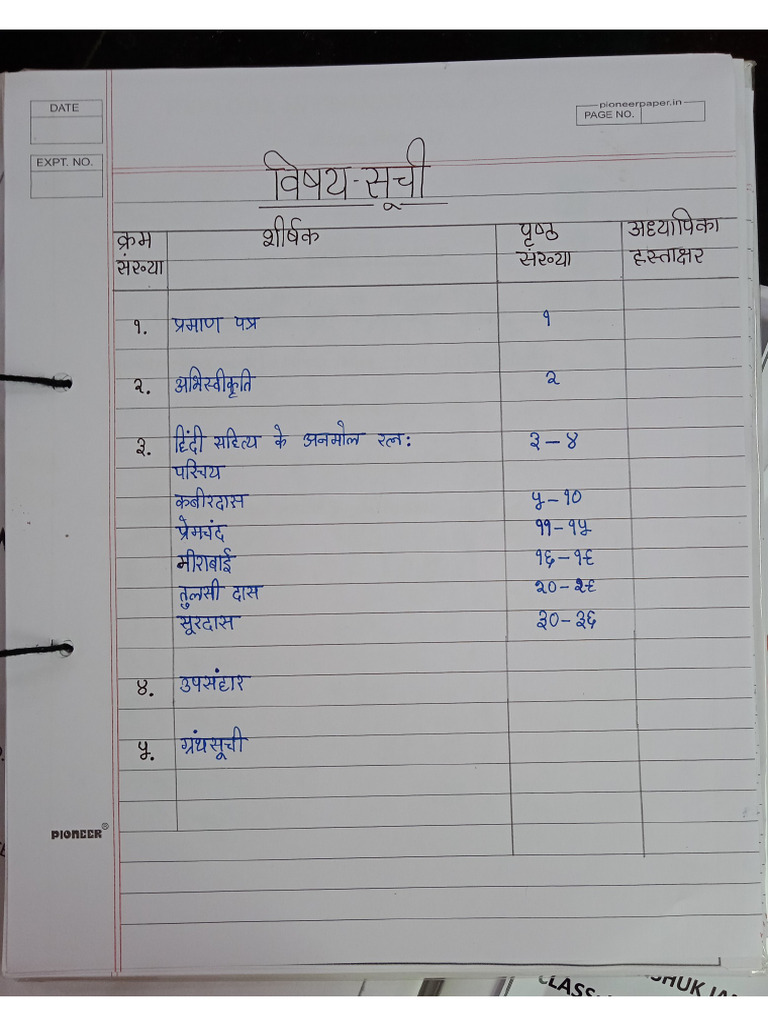 DATE
pioneerpaper.in
PAGE NO.
EXPT. NO.
विषय-सूची
क्रम संख्या शीर्षक पृष्ठ संख्या अध्यापिका हस्ताक्षर
१. प्रमाण पत्र १
२. अभिस्वीकृति २
३. हिंदी सहित्य के अनमोल रत्न: ३-४
परिचय
कबीरदास ५-१०
प्रेमचंद ११-१५
मीराबाई १६-१९
तुलसी दास २०-२९
सूरदास ३०-३६
४. उपसंहार
५. ग्रंथसूची
PIONEER®
CLASS